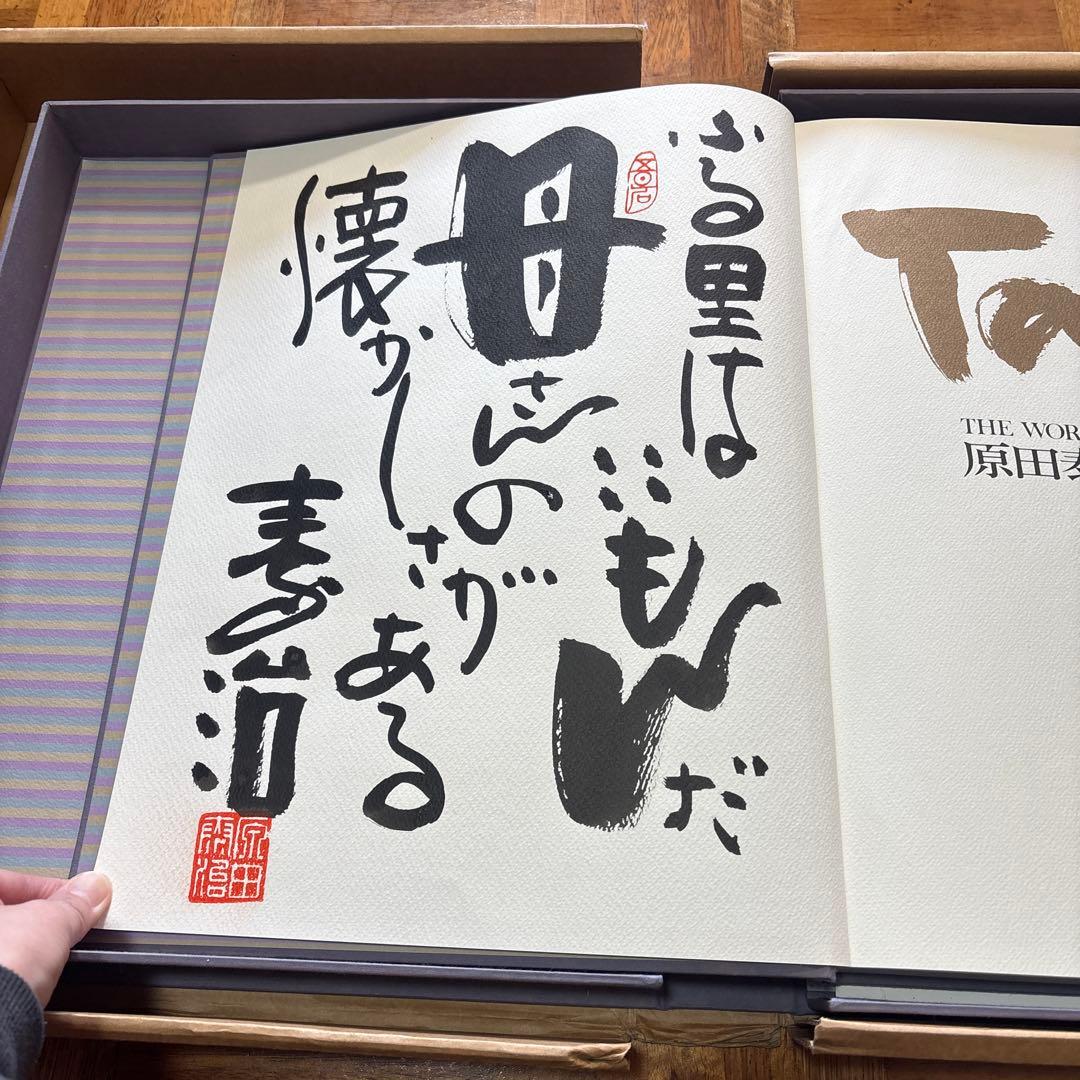 ふる里は
いいもんだ
母さんの
懐かしさが
ある
泰治
原田泰治
Ta
THE WOR
原田泰